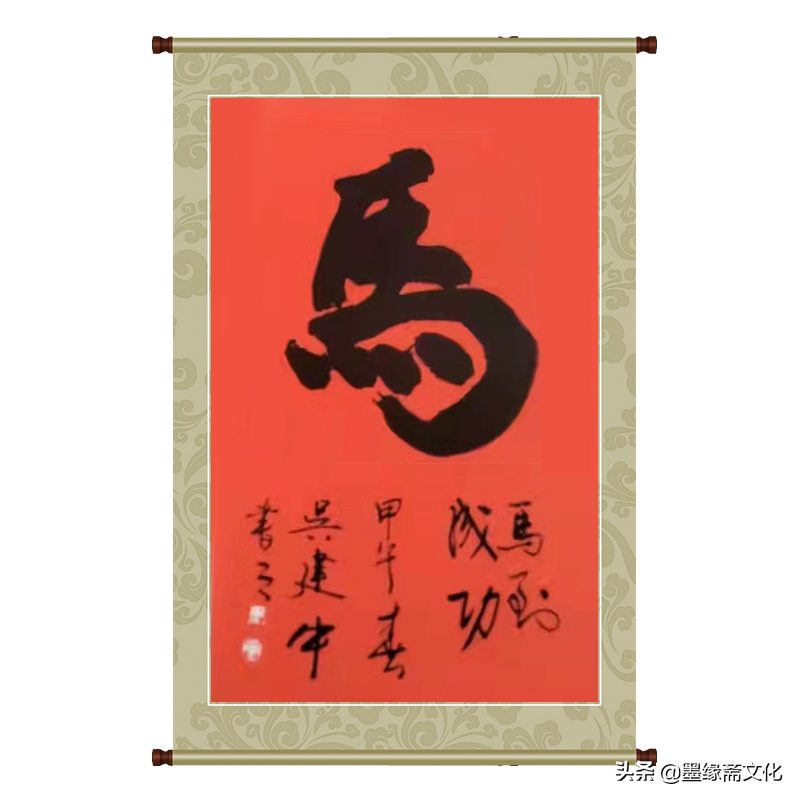 馬
馬到
成功
甲午春
吳建中
書之
头条 @墨缘斋文化